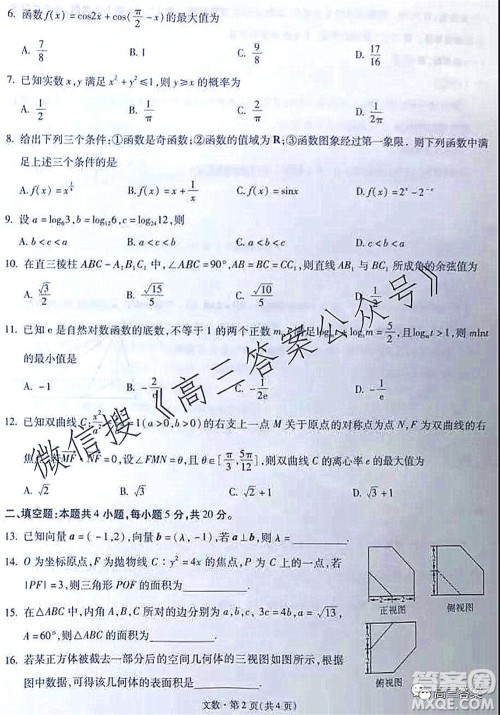 6. 函数 f(x)=cos2x+cos(π/2-x)的最大值为
A. 7/8 B. 1 C. 9/8 D. 17/16
7. 已知实数 x,y 满足 x²+y²≤1,则 y≥x 的概率为
A. 1/2 B. 1/π C. 2/π D. 1/2π
8. 给出下列三个条件:①函数是奇函数;②函数的值域为 R;③函数图象经过第一象限. 则下列函数中满
足上述三个条件的是
B. f(x)=x+1/x C. f(x)=sinx D. f(x)=2ˣ-2⁻ˣ
9. 设 a=log₈3,b=log₁₂6,c=log₂₄12,则
A. b<c<a B. a<c<b C. a<b<c D. c<b<a
10. 在直三棱柱 ABC-A₁B₁C₁ 中,∠ABC=90°,AB=BC=CC₁,则直线 AB₁ 与 BC₁ 所成角的余弦值为
A. √3/2 B. √15/5 C. √10/5 D. 1/2
11. 已知 e 是自然对数函数的底数,不等于 1 的两个正数 m,t 满足 =5/2,且 >1,则 mlnt
的最小值是
A. -1 C. -1/2e D. -1/e
12. 已知双曲线 C: =1(a>0,b>0)的右支上一点 M 关于原点的对称点为点 N,F 为双曲线的右
焦点, MF·NF=0,设∠FMN=θ,且 θ∈[π/3,5π/12],则双曲线 C 的离心率 e 的最大值为
A. √2 B. √3 D. √5
二、填空题:本题共 4 小题,每小题 5 分,共 20 分。
13. 已知向量 a=(-1,2),向量 b=(λ,-1),若 a⊥b,则 λ=
14. O 为坐标原点,F 为抛物线 C:y²=4x 的焦点,P 为 C 上一点,若
|PF|=3,则三角形 POF 的面积为
15. 在△ABC 中,内角 A,B,C 所对的边分别为 a,b,c, 3c=4b,a=√13,
A=60°,则△ABC 的面积为
16. 若某正方体被截去一部分后的空间几何体的三视图如图所示,根据
图中数据,可得该几何体的表面积为
正视图
侧视图
俯视图
文数·第 2 页(共 4 页)
微信搜《高三答案公众号》
高三答案
答案圈
MXQE.COM